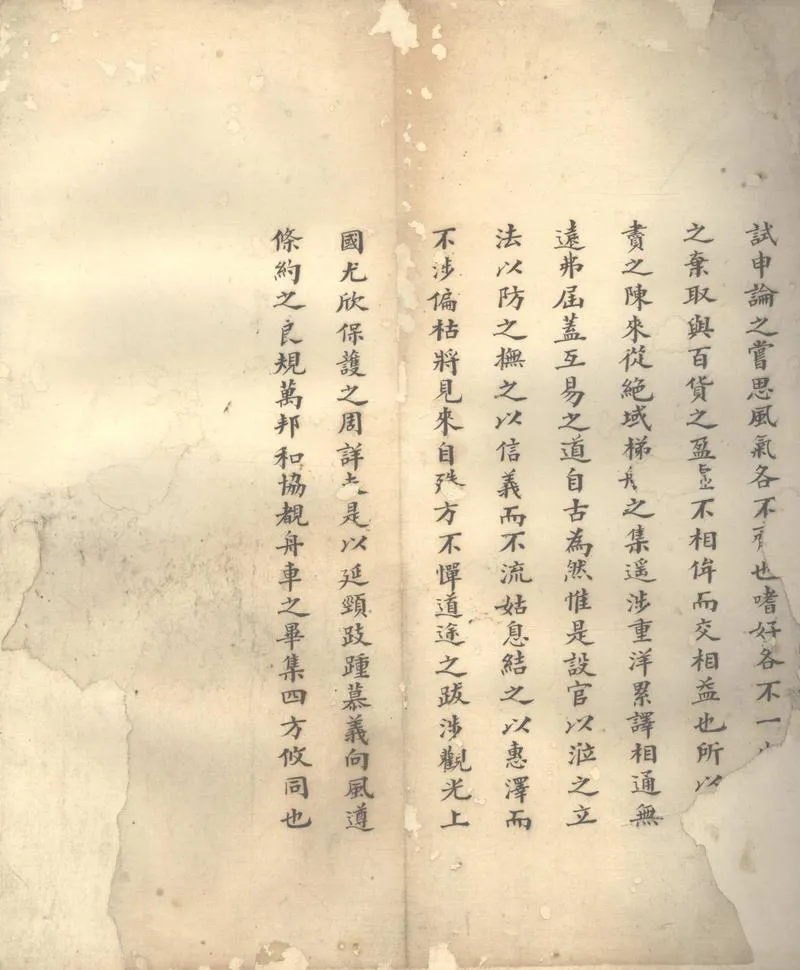 試申論之嘗思風氣各不齊也嗜好各不一
之棄取與百貨之盈虛不相侔而交相益也所以
賷之陳來從絕域梯舟之集遥涉重洋累譯相通無
遠弗屆蓋互易之道自古為然惟是設官以涖之立
法以防之撫之以信義而不流姑息結之以惠澤而
不涉偏枯將見來自殊方不憚道途之跋涉觀光上
國尤欣保護之周詳是以延頸跂踵慕義向風遵
條約之良規萬邦和協覩舟車之畢集四方攸同也